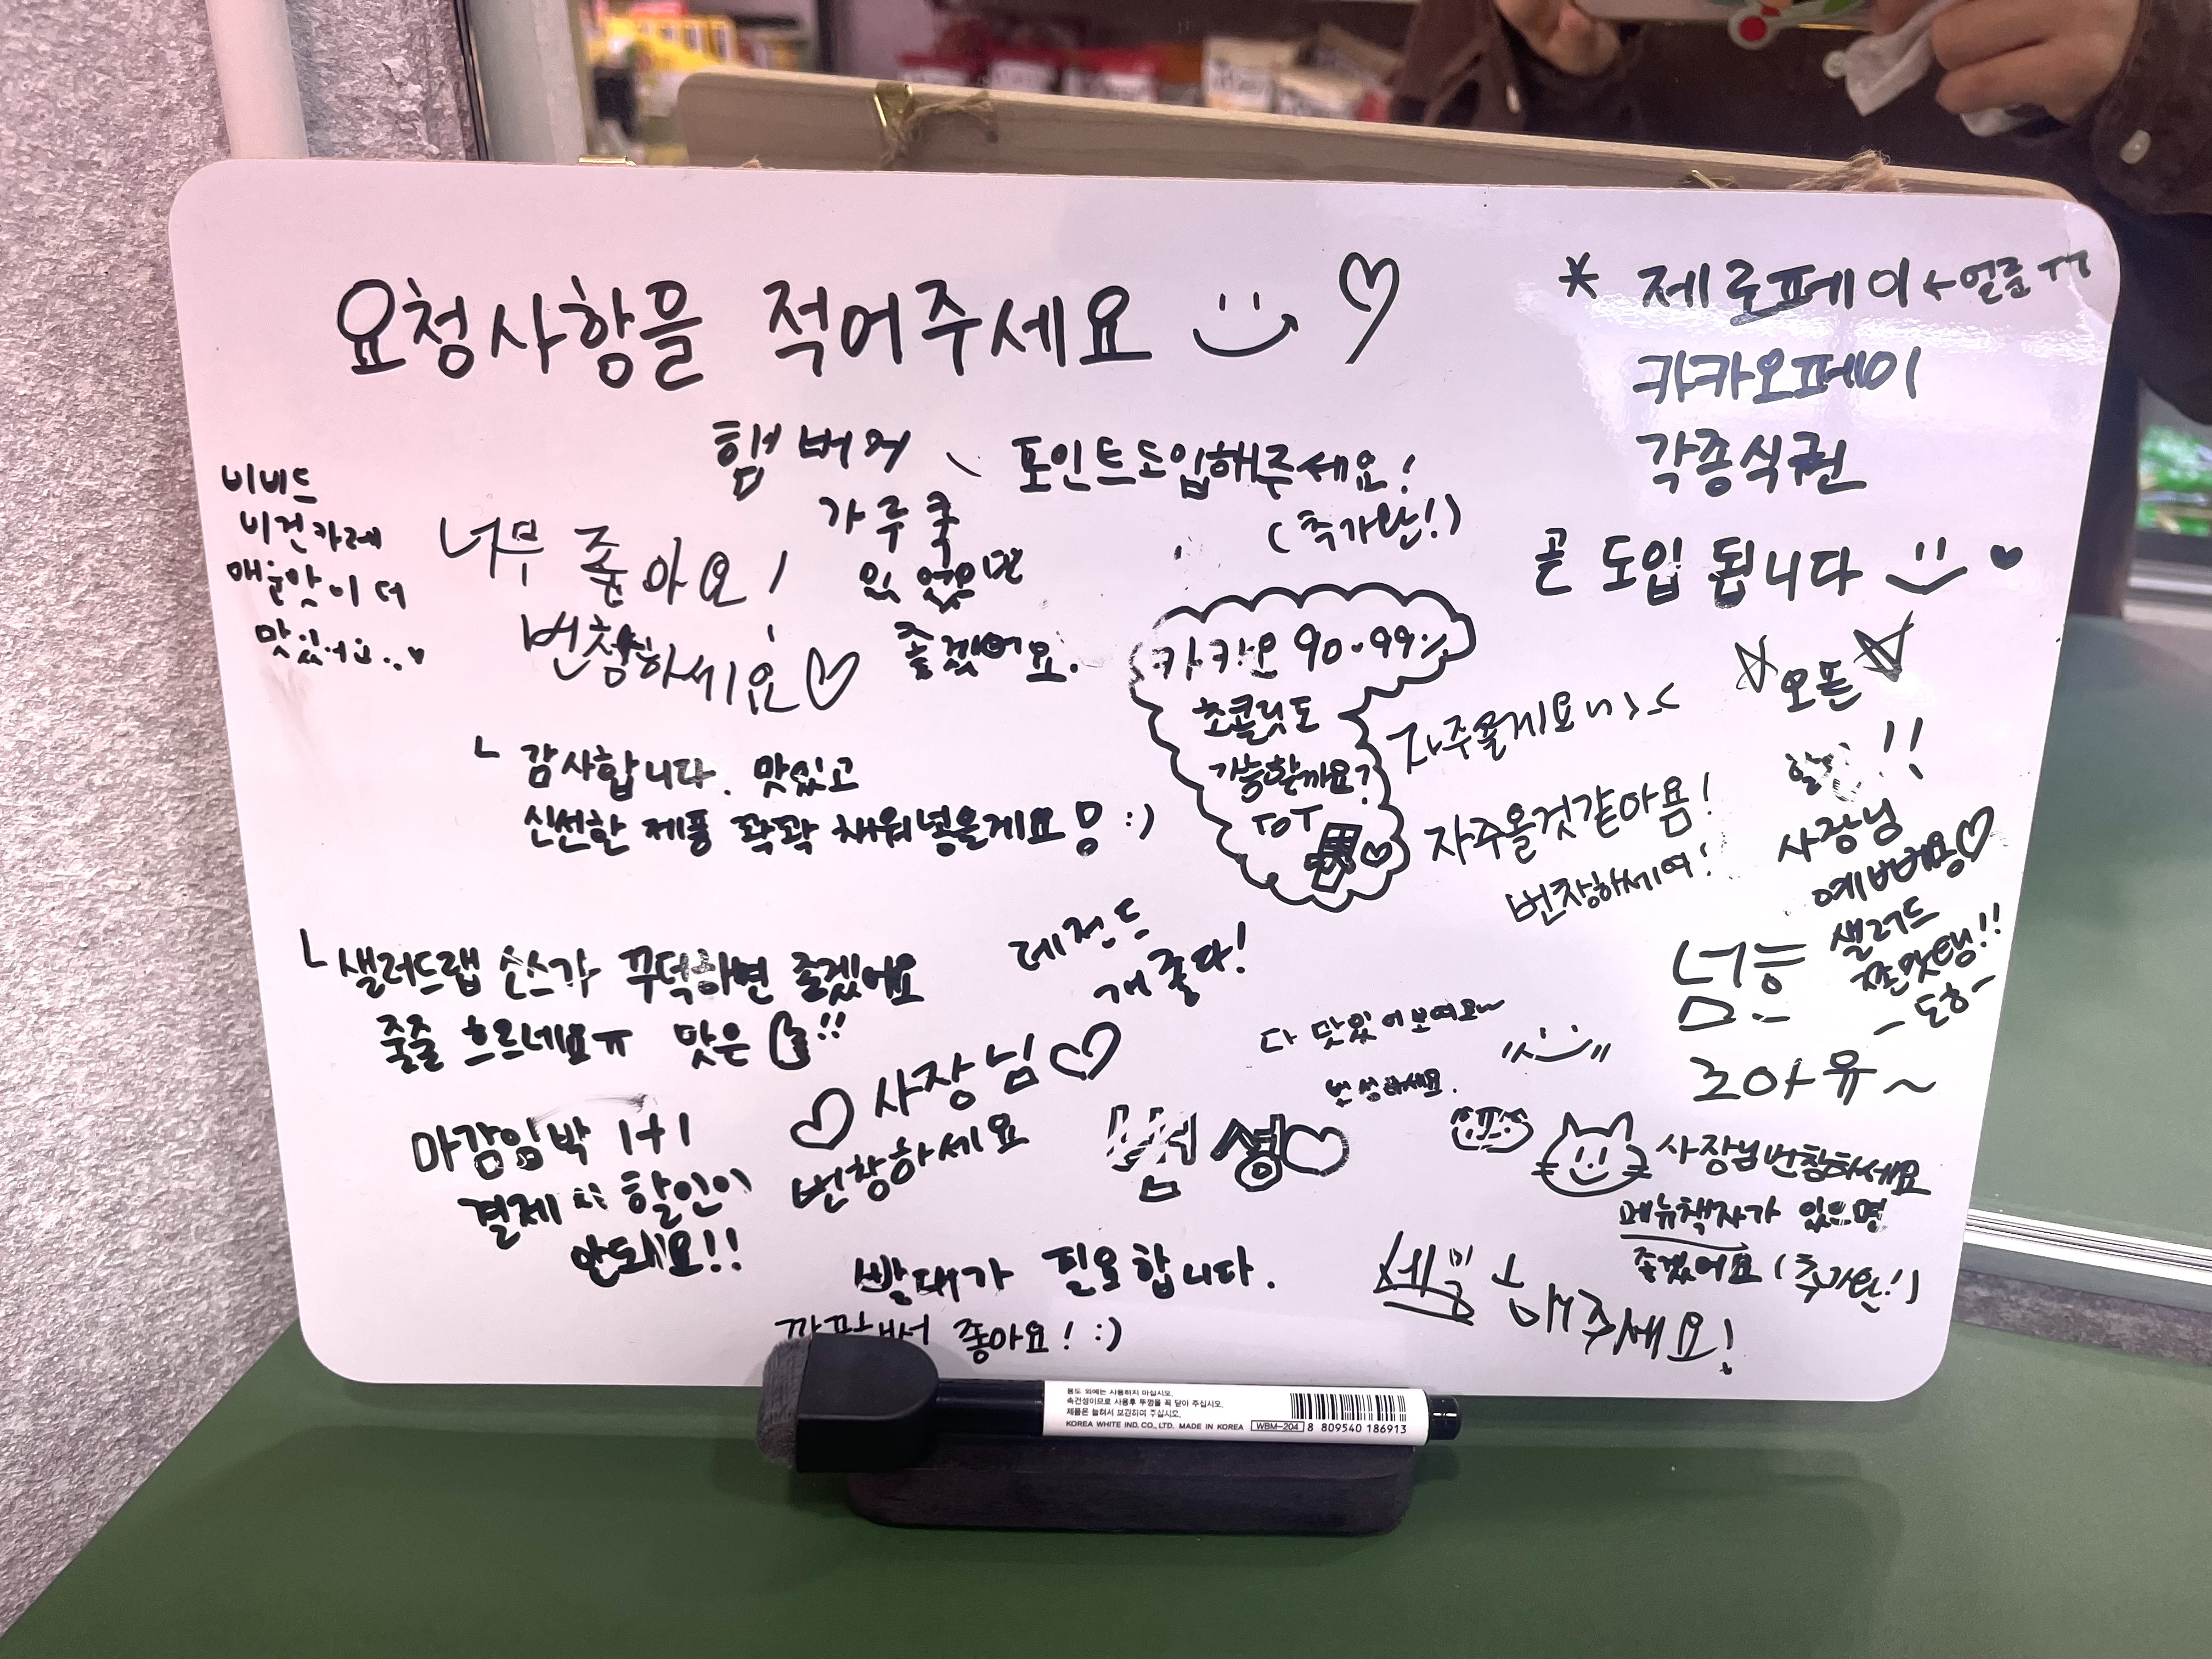 요청사항을 적어주세요
* 제로페이 ← 얼른 ㅜㅜ
카카오페이
각종식권
곧 도입 됩니다
비비드
비건카레
매운맛이 더
맛있어요..
너무 좋아요!
번창하세요
햄버거
가루쿡
있었으면
좋겠어요.
포인트도입해주세요!
(추가완!)
카카오 90.99%
초콜릿도
가능할까요?
ToT
오픈
!!
자주올게요
자주올것같아욤!
번창하세여!
사장님
예뻐용
샐러드
쫀맛탱!!
- 도하 -
ㄴ 감사합니다. 맛있고
신선한 제품 팍팍 채워넣을게요 :)
ㄴ 샐러드랩 소스가 꾸덕하면 좋겠어요
줄줄 흐르네요ㅠ 맛은 !!
레전드
개좋다!
다 맛있어보여요~
번성하세요.
넘흐
조아유~
마감임박 1+1
결제 시 할인이
안돼요!!
사장님
번창하세요
번성
사장님번창하세요
메뉴책자가 있으면
좋겠어요 (추가완!)
빨대가 필요합니다.
해주세요!
좋아요! :)
용도 외에는 사용하지 마십시오.
속건성이므로 사용후 뚜껑을 꼭 닫아 주십시오.
제품은 눕혀서 보관하여 주십시오.
KOREA WHITE IND. CO., LTD. MADE IN KOREA WBM-204 8 809540 186913